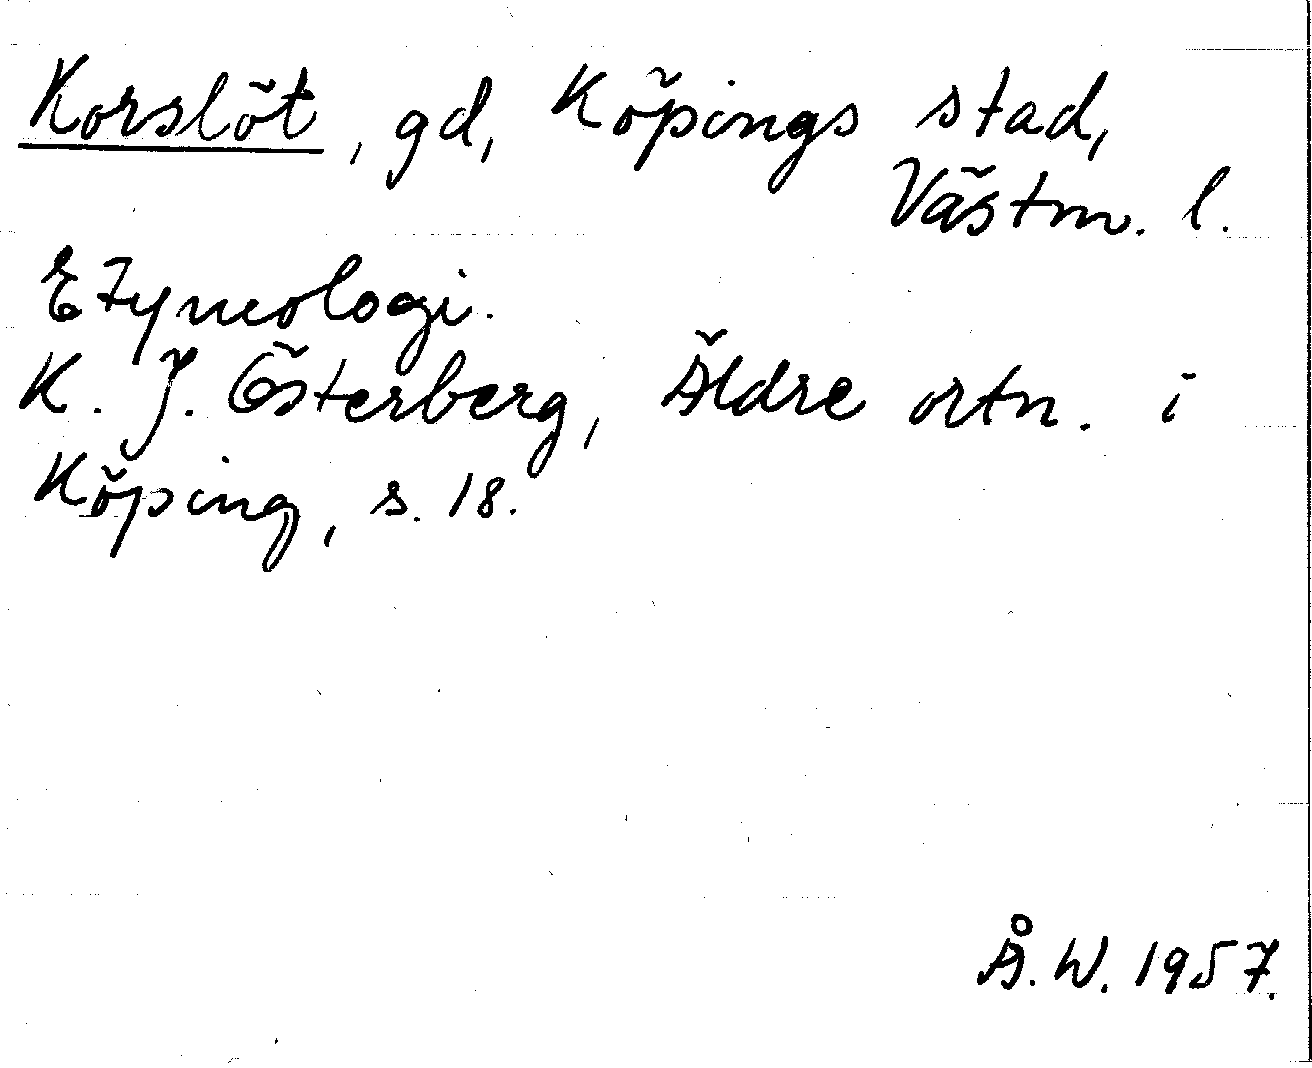 Korslöt, gd, Köpings stad,
Västm. l.
Etymologi.
K. J. Österberg, Äldre ortn. i
Köping, s. 18.
Å. W. 1957.